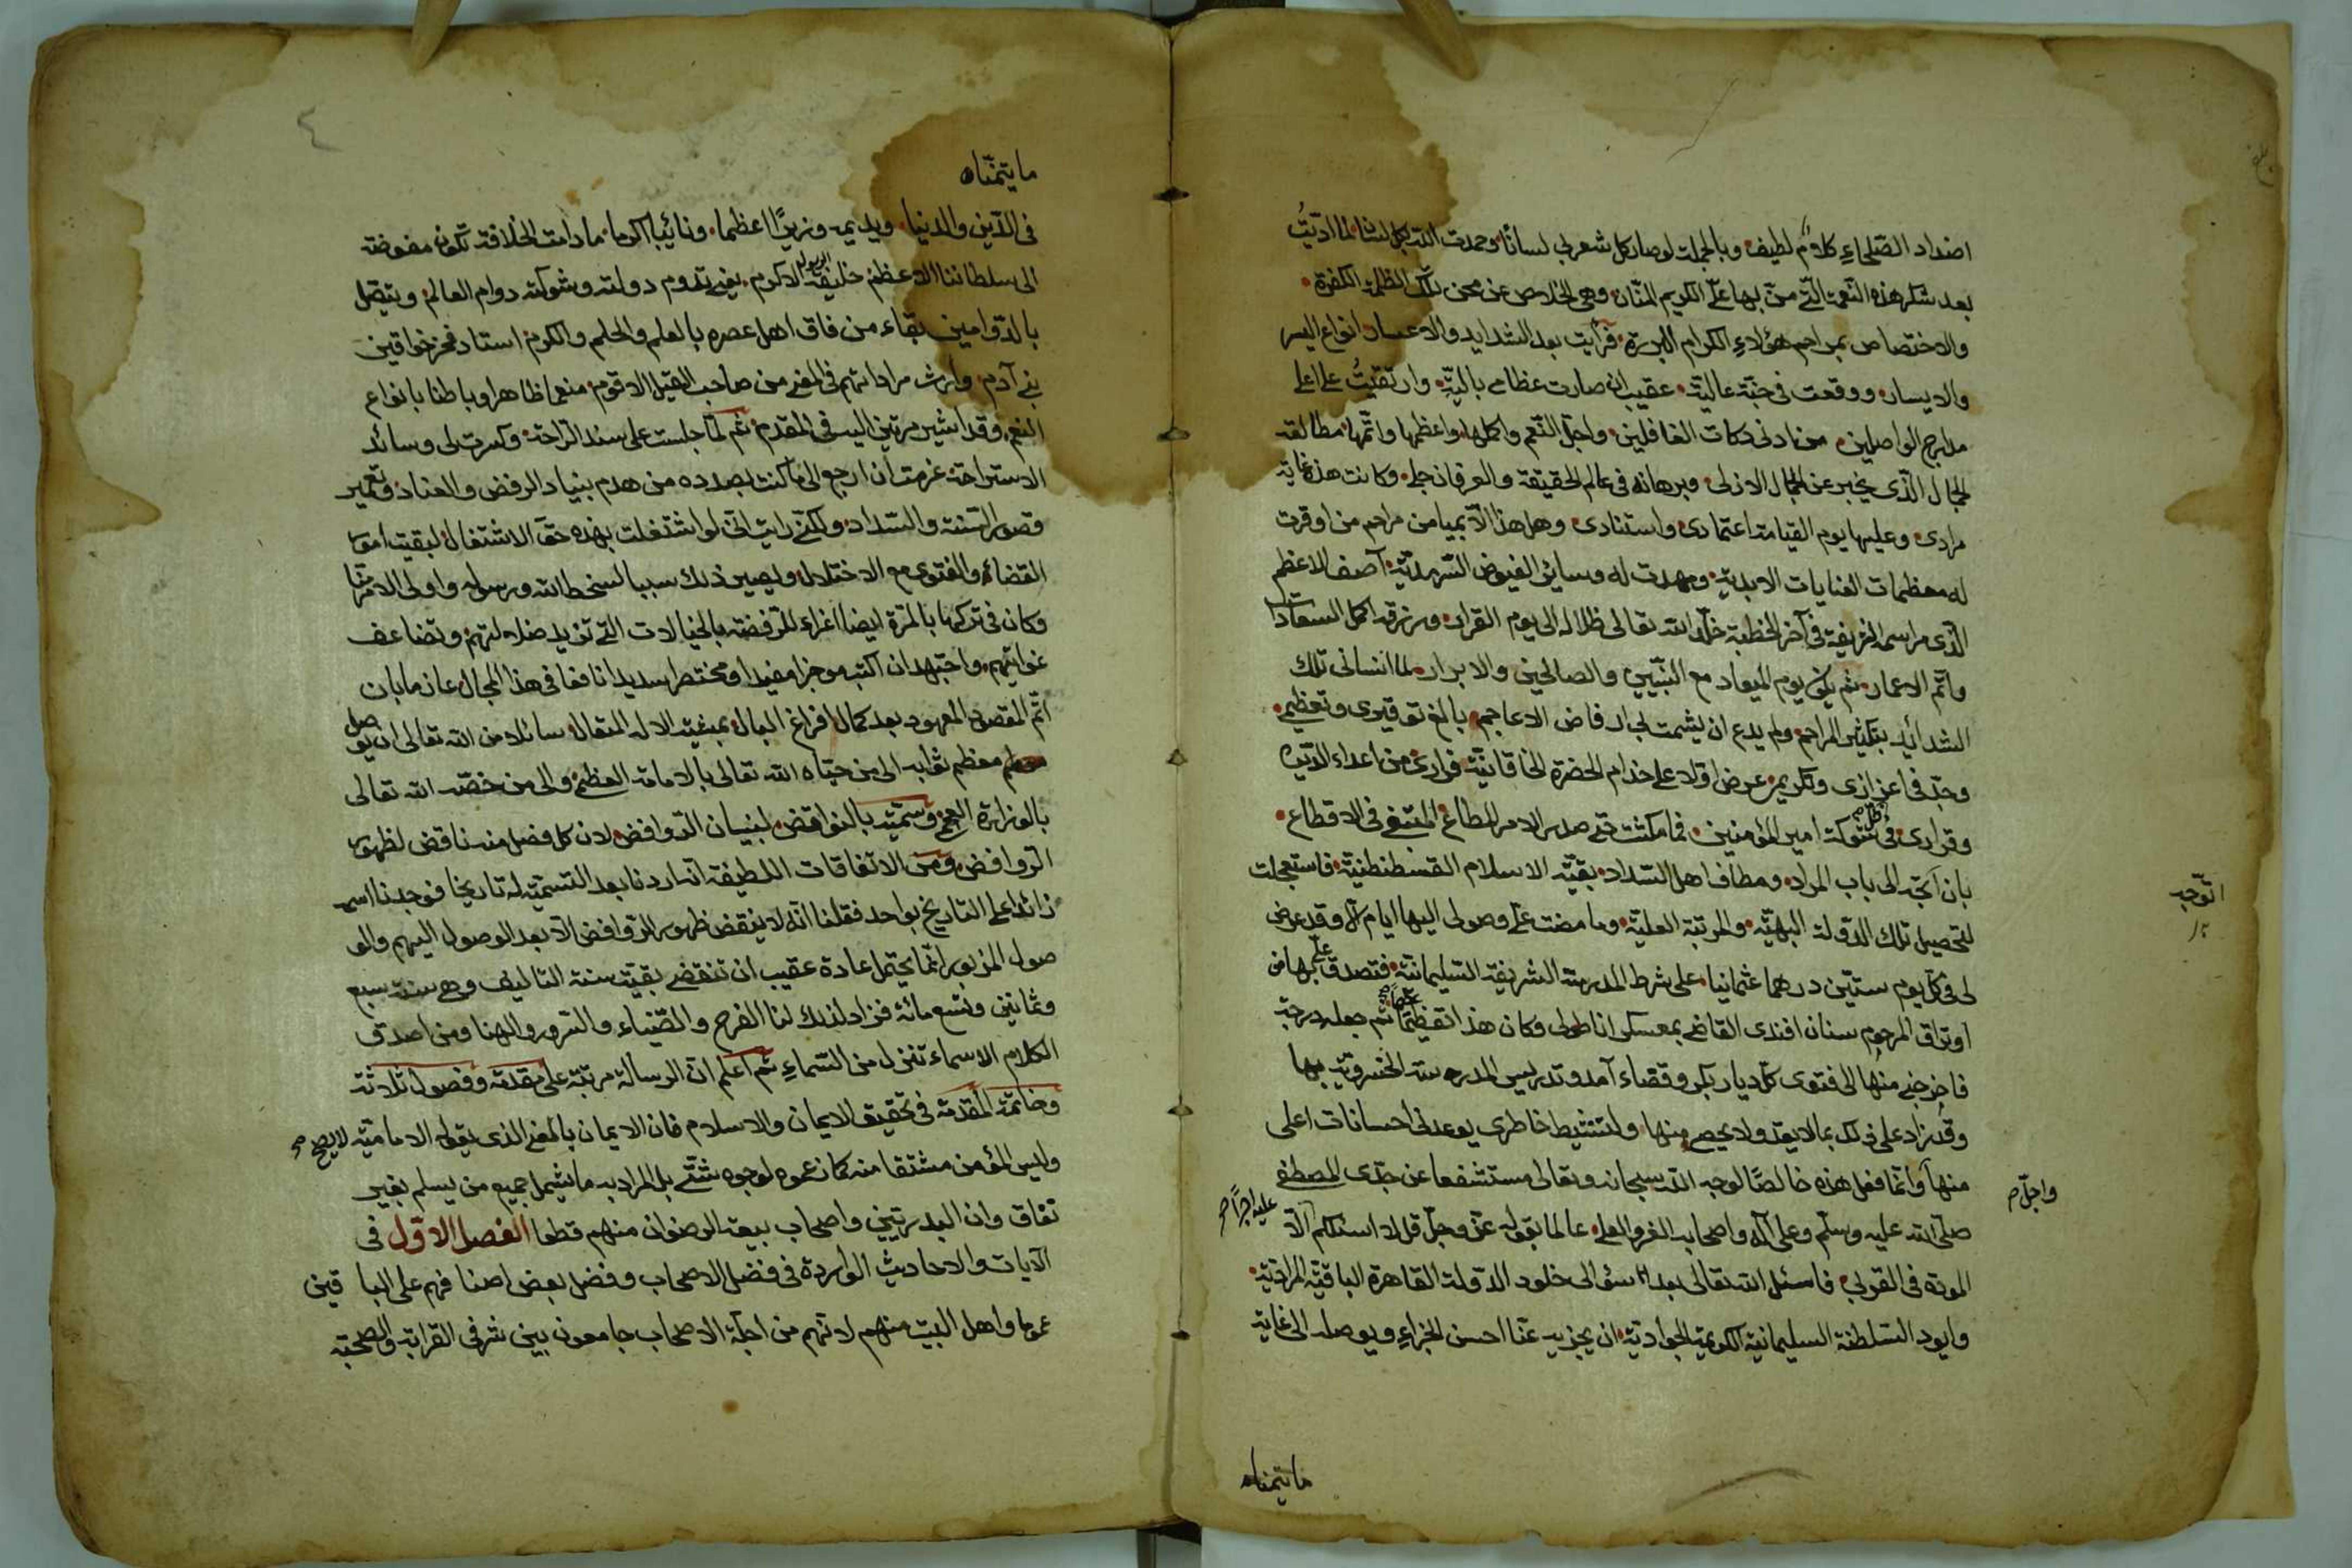 اضداد الصّلحاءِ كلامٌ لطيف وبالجملة لو صار كل شعر لى لسانًا وحمدت الله بكل لسان لما ادّيتُ
بعد شكر هذه النّعمة التى منّ بها علىّ الكريم المنّان وهى الخلاص عن محن تلك الظلمة الكفرة
والاختصاص بمراحم هؤلاءِ الكرام البررة فرأيت بعد الشدايد والاعسار انواع اليسر
والايسار ووقعت فى جنّة عالية عقيب ان صارت عظامى بالية وارتقيتُ على اعلى
مدارج الواصلين من ادنى دركات الغافلين واجلّ النّعم واكملها واعظمها واتمّها مطالعة
الجمال الّذى يخبر عن الجمال الازلى وبرهانه فى عالم الحقيقة والعرفان جلى وكانت هذه غاية
مرادى وعليها يوم القيامة اعتمادى واستنادى وهل هذا الّا بميامن مراحم من اوقرت
له معظمات العنايات الابدية ومهدت له وسائل الفيوض السّرمديّة آصف الاعظم
الّذى مراسمه الشريفة فى آخر الخطبة خلّد الله تعالى ظلاله الى يوم القرار ورزقه اكمل السعادات
واتّم الاعمار ثم يكون يوم الميعاد مع النبّيين والصالحين والابرار لما انسانى تلك
الشدائد بتكثير المراحم ولم يدع ان يشمت لى ارفاض الاعاجم بالغ توقيرى وتعظيمى
وجدّ فى اعزازى وتكريمى عرض اولا على خدام الحضرة الخاقانيّة فرارى من اعداء الدّين
وقرارى فى ظل شوكة امير المؤمنين فما مكثت حتى صدر الامر المطاع المتبع فى الاقطاع
بان اتوجّه الى باب المراد ومطاف اهل السّداد بقيّة الاسلام القسطنطنيّة فاستعجلت
لتحصيل تلك الدّولة البهيّة والمرتبة العليّة وما مضت على وصولى اليها ايام الّا وقد عرض
لى فى كل يوم ستّين درهما عثمانيا على شرط المدرسة الشريفة السّليمانيّة فتصدق علىّ بها من
اوتراق المرحوم سنان افندى القاضى بمعسكر اناطولى وكان هذا تعظيمًا ثم جعله درجة
فاخرجنى منها الى فتوى كل ديار بكر وقضاء آمد وتدريس المدرسة الخسرويّة بها
وقد زاد على ذلك بما لا يعدّ ولا يحصى منها ولتنشيط خاطرى يوعدنى احسانات اعلى
منها وانّما فعل هذه خالصًا لوجه الله سبحانه وتعالى مستشفعا عن جدّى المصطفى
صلّى الله عليه وسلّم وعلى آله واصحابه الغرّ والعلى عالما بقوله عزّ وجلّ قل لا اسئلكم الّا
المودّة فى القربى فاسئل الله تعالى بعد سؤالى خلود الدّولة القاهرة الباقيّة المراديّة
وابود السّلطنة السليمانية الكريمة الجوادية ان يجزيه عنّا احسن الجزاءِ ويوصله الى غاية
اتوّجه
واجلّ صح
عليه اجرًا صح
ما يتمناه
ما يتمنّاه
فى الدّين والدنيا ويديمه وزيرًا اعظما ونائبا اكرما ما دامت الخلافة تكون مفوضة
الى سلطاننا الاعظم خليفة الرسول الاكرم يعنى تدوم دولته وشوكته دوام العالم ويتصل
بالدّوامين بقاء من فاق اهل عصره بالعلم والحلم والكرم استاد فخر خواقين
بنى آدم وارث مراداتهم فى المعنى من صاحب القيل الاقوم منعما ظاهرا وباطنا بانواع
النعم وقد اشير مرتين اليه فى المقدم ثم لمّا جلست على سند الرّاحة وكسرت لى وسائد
الاستراحة عزمت ان ارجع الى ما كنت بصدده من هدم بنياد الرفض والعناد وتعمير
قصور السّنة والسّداد ولكنّى رايت انّى لو اشتغلت بهذه حقّ الاشتغال لبقيت امور
القضاء والفتوى مع الاختلال ويصير ذلك سببا لسخط الله ورسوله واولى الامر
وكان فى تركها بالمرّة ايضا اغراء للرّفضة بالخيالات التى تزيد ضلالتهم وتضاعف
غوايتهم واجتهد ان اكتب موجزا مفيدا ومختصرا سديدا نافعا فى هذا المجال عازما بان
اتّم المقصود المعهود بعد كمال افراغ البال بمشية الاله المتعال سائلا من الله تعالى ان يوصل
معظم ثوابه الى من حيّاه الله تعالى بالامامة العظمى والى من خصّه الله تعالى
بالوزارة العجمى وسمّيته بالنواقض لبنيان الرّوافض لان كل فصل منه ناقض لظهور
الرّوافض ومن الاتفاقات اللطيفة انّا اردنا بعد التسمية له تاريخا فوجدنا اسمه
زائدا على التاريخ بواحد فقلنا انّه لا ينقض ظهور الرّوافض الّا بعد الوصول اليهم والو
صول المزبور انّما يحتمل عادة عقيب ان تنقضى بقيّة سنة التاليف وهى سنة سبع
وثمانين وتسعمائة فزاد لذلك لنا الفرح والضّياء والسّرور والهنا ومن اصدق
الكلام الاسماء تنزل من السّماءِ ثم اعلم انّ الرسالة مرتبّة على مقدمة وفصول ثلاثة
وخاتمة المقدمة فى تحقيق الايمان والاسلام فان الايمان بالمعنى الذى يقوله الاماميّة لا يصح
وليس المؤمن مشتقا منه كما زعموه لوجوه شتّى بل المراد به ما يشمل جميع من يسلم بغير
نفاق وان البدريّين واصحاب بيعة الرضوان منهم قطعا الفصل الاوّل فى
الآيات والاحاديث الواردة فى فضل الاصحاب وفضل بعض اصنافهم على الباقين
عموما واهل البيت منهم لانّهم من اجلّة الاصحاب جامعون بين شرفى القرابة والصحبة